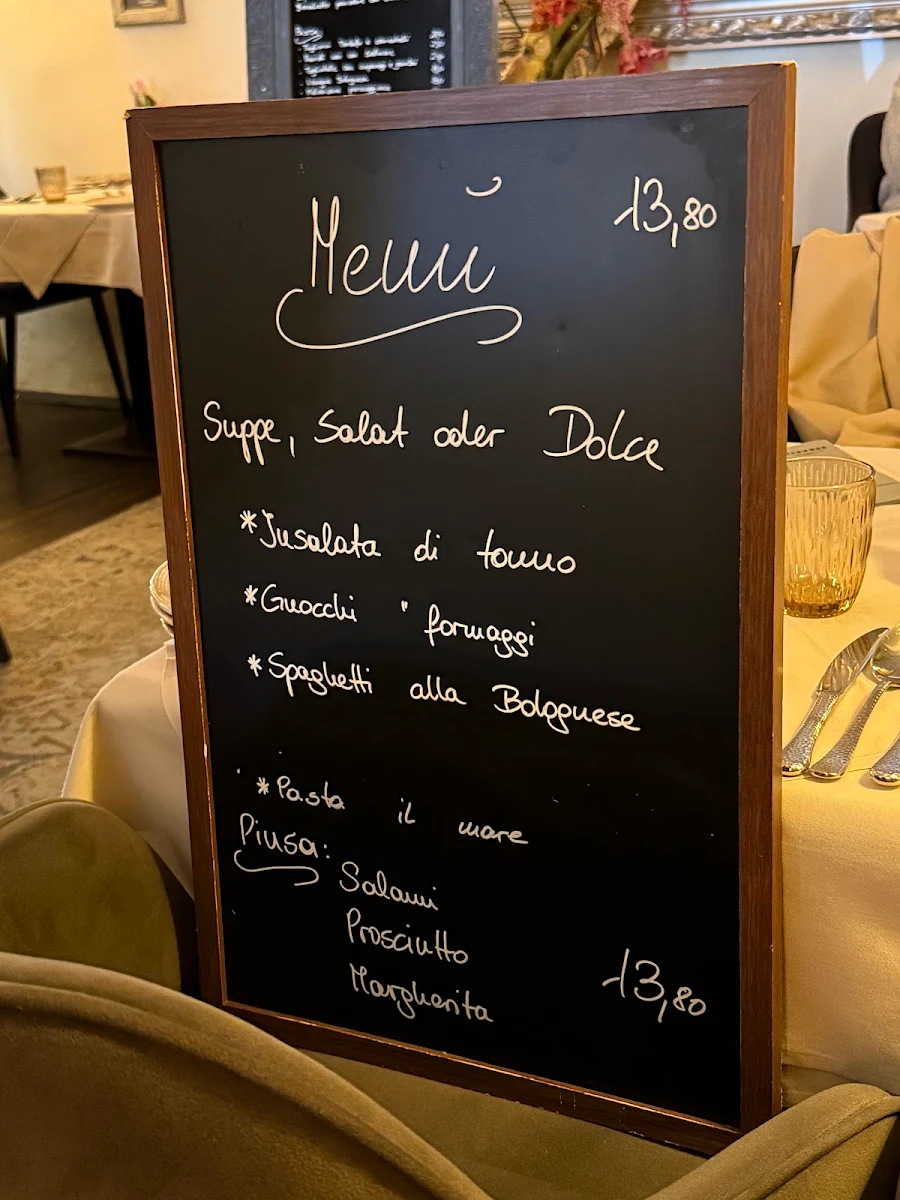 Menü
13,80
Suppe, Salat oder Dolce
*Insalata di tonno
*Gnocchi " formaggi
*Spaghetti alla Bolognese
*Pasta il mare
Pinsa:
Salami
Prosciutto
Margherita
13,80